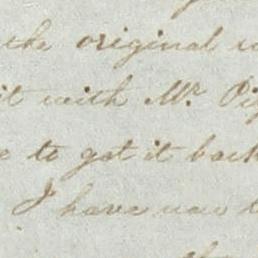 the original
it with Mr.
to got it back
I have now